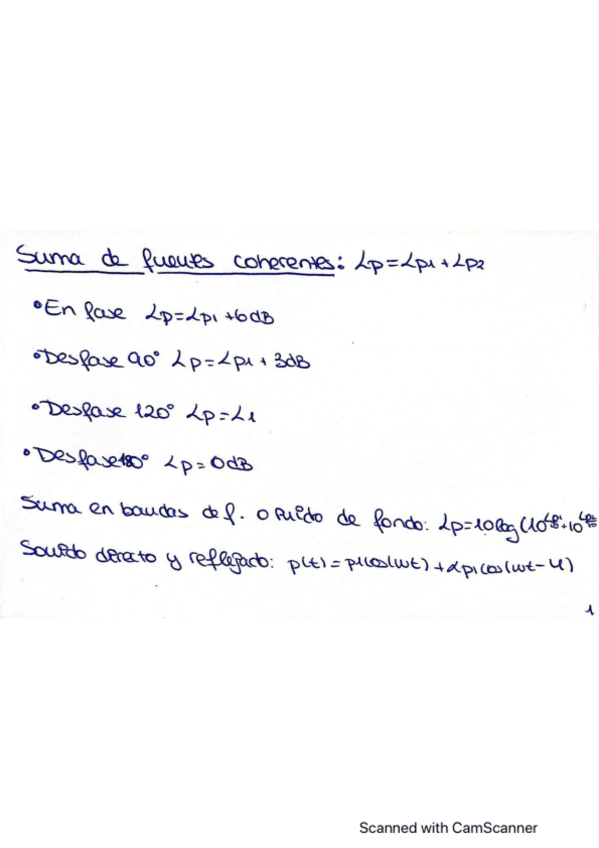 Suma de fuentes coherentes: Lp=Lp1+Lp2
•En fase Lp=Lp1+6dB
•Desfase 90° Lp=Lp1+3dB
•Desfase 120° Lp=L1
•Desfase 180° Lp=0dB
Suma en bandas de f. o ruido de fondo: Lp=10log(10
Sonido directo y reflejado: p(t)=p1cos(wt)+αp1cos(wt-φ)
1
Scanned with CamScanner